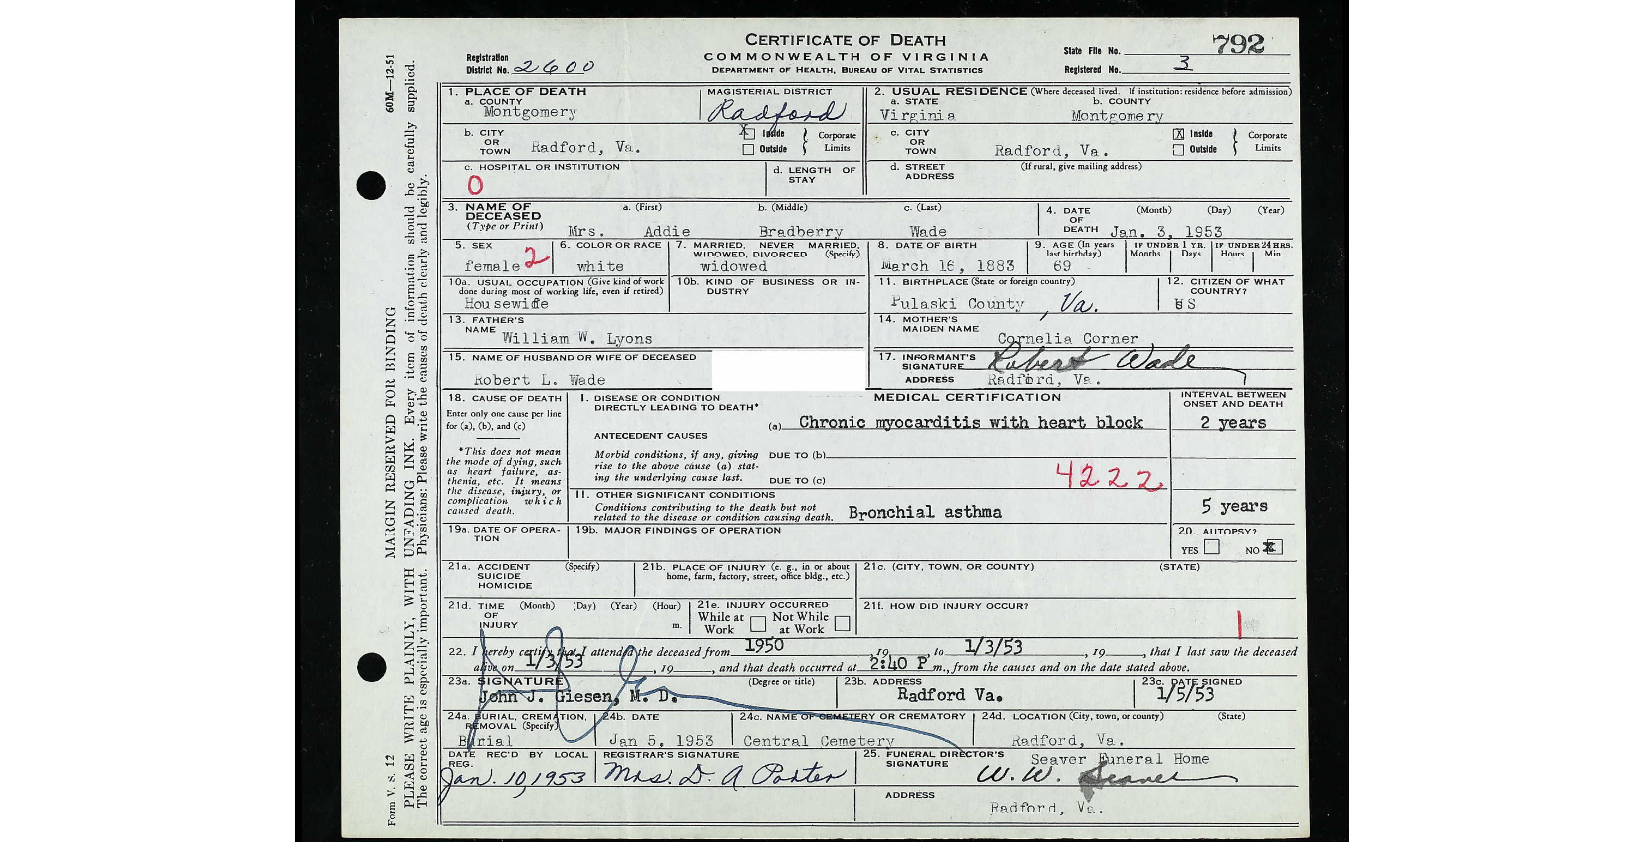 CERTIFICATE OF DEATH
COMMONWEALTH OF VIRGINIA
DEPARTMENT OF HEALTH, BUREAU OF VITAL STATISTICS
Registration District No. 2600
State File No. 792
Registered No. 3
60M—12-51
MARGIN RESERVED FOR BINDING
PLEASE WRITE PLAINLY, WITH UNFADING INK. Every item of information should be carefully supplied.
The correct age is especially important. Physicians: Please write the causes of death clearly and legibly.
Form V. s. 12
1. PLACE OF DEATH
a. COUNTY
Montgomery
MAGISTERIAL DISTRICT
Radford
2. USUAL RESIDENCE (Where deceased lived. If institution: residence before admission)
a. STATE
Virginia
b. COUNTY
Montgomery
b. CITY OR TOWN
Radford, Va.
X Inside
Outside
Corporate Limits
c. CITY OR TOWN
Radford, Va.
X Inside
Outside
Corporate Limits
c. HOSPITAL OR INSTITUTION
0
d. LENGTH OF STAY
d. STREET ADDRESS
(If rural, give mailing address)
3. NAME OF DECEASED
(Type or Print)
a. (First)
b. (Middle)
c. (Last)
Mrs. Addie Bradberry Wade
4. DATE OF DEATH
(Month) (Day) (Year)
Jan. 3, 1953
5. SEX
female 2
6. COLOR OR RACE
white
7. MARRIED, NEVER MARRIED, WIDOWED, DIVORCED (Specify)
widowed
8. DATE OF BIRTH
March 16, 1883
9. AGE (In years last birthday)
69
IF UNDER 1 YR.
Months Days
IF UNDER 24 HRS.
Hours Min
10a. USUAL OCCUPATION (Give kind of work done during most of working life, even if retired)
Housewiffe
10b. KIND OF BUSINESS OR INDUSTRY
11. BIRTHPLACE (State or foreign country)
Pulaski County, Va.
12. CITIZEN OF WHAT COUNTRY?
US
13. FATHER'S NAME
William W. Lyons
14. MOTHER'S MAIDEN NAME
Cornelia Corner
15. NAME OF HUSBAND OR WIFE OF DECEASED
Robert L. Wade
17. INFORMANT'S SIGNATURE
Robert Wade
ADDRESS
Radford, Va.
18. CAUSE OF DEATH
Enter only one cause per line for (a), (b), and (c)
*This does not mean the mode of dying, such as heart failure, asthenia, etc. It means the disease, injury, or complication which caused death.
MEDICAL CERTIFICATION
INTERVAL BETWEEN ONSET AND DEATH
I. DISEASE OR CONDITION DIRECTLY LEADING TO DEATH*
(a) Chronic myocarditis with heart block
2 years
ANTECEDENT CAUSES
Morbid conditions, if any, giving rise to the above cause (a) stating the underlying cause last.
DUE TO (b)
DUE TO (c)
4222
II. OTHER SIGNIFICANT CONDITIONS
Conditions contributing to the death but not related to the disease or condition causing death.
Bronchial asthma
5 years
19a. DATE OF OPERATION
19b. MAJOR FINDINGS OF OPERATION
20. AUTOPSY?
YES NO X
21a. ACCIDENT SUICIDE HOMICIDE
(Specify)
21b. PLACE OF INJURY (e. g., in or about home, farm, factory, street, office bldg., etc.)
21c. (CITY, TOWN, OR COUNTY)
(STATE)
21d. TIME OF INJURY
(Month) (Day) (Year) (Hour)
m.
21e. INJURY OCCURRED
While at Work
Not While at Work
21f. HOW DID INJURY OCCUR?
1
22. I hereby certify that I attended the deceased from 1950, 19 , to 1/3/53, 19 , that I last saw the deceased
alive on 1/3/53, 19 , and that death occurred at 2:40 P m., from the causes and on the date stated above.
23a. SIGNATURE
(Degree or title)
John J. Giesen, M. D.
23b. ADDRESS
Radford Va.
23c. DATE SIGNED
1/5/53
24a. BURIAL, CREMATION, REMOVAL (Specify)
Burial
24b. DATE
Jan 5, 1953
24c. NAME OF CEMETERY OR CREMATORY
Central Cemetery
24d. LOCATION (City, town, or county) (State)
Radford, Va.
DATE REC'D BY LOCAL REG.
Jan. 10, 1953
REGISTRAR'S SIGNATURE
Mrs. D. A Porter
25. FUNERAL DIRECTOR'S SIGNATURE
Seaver Funeral Home
W. W. Seaver
ADDRESS
Radford, Va.